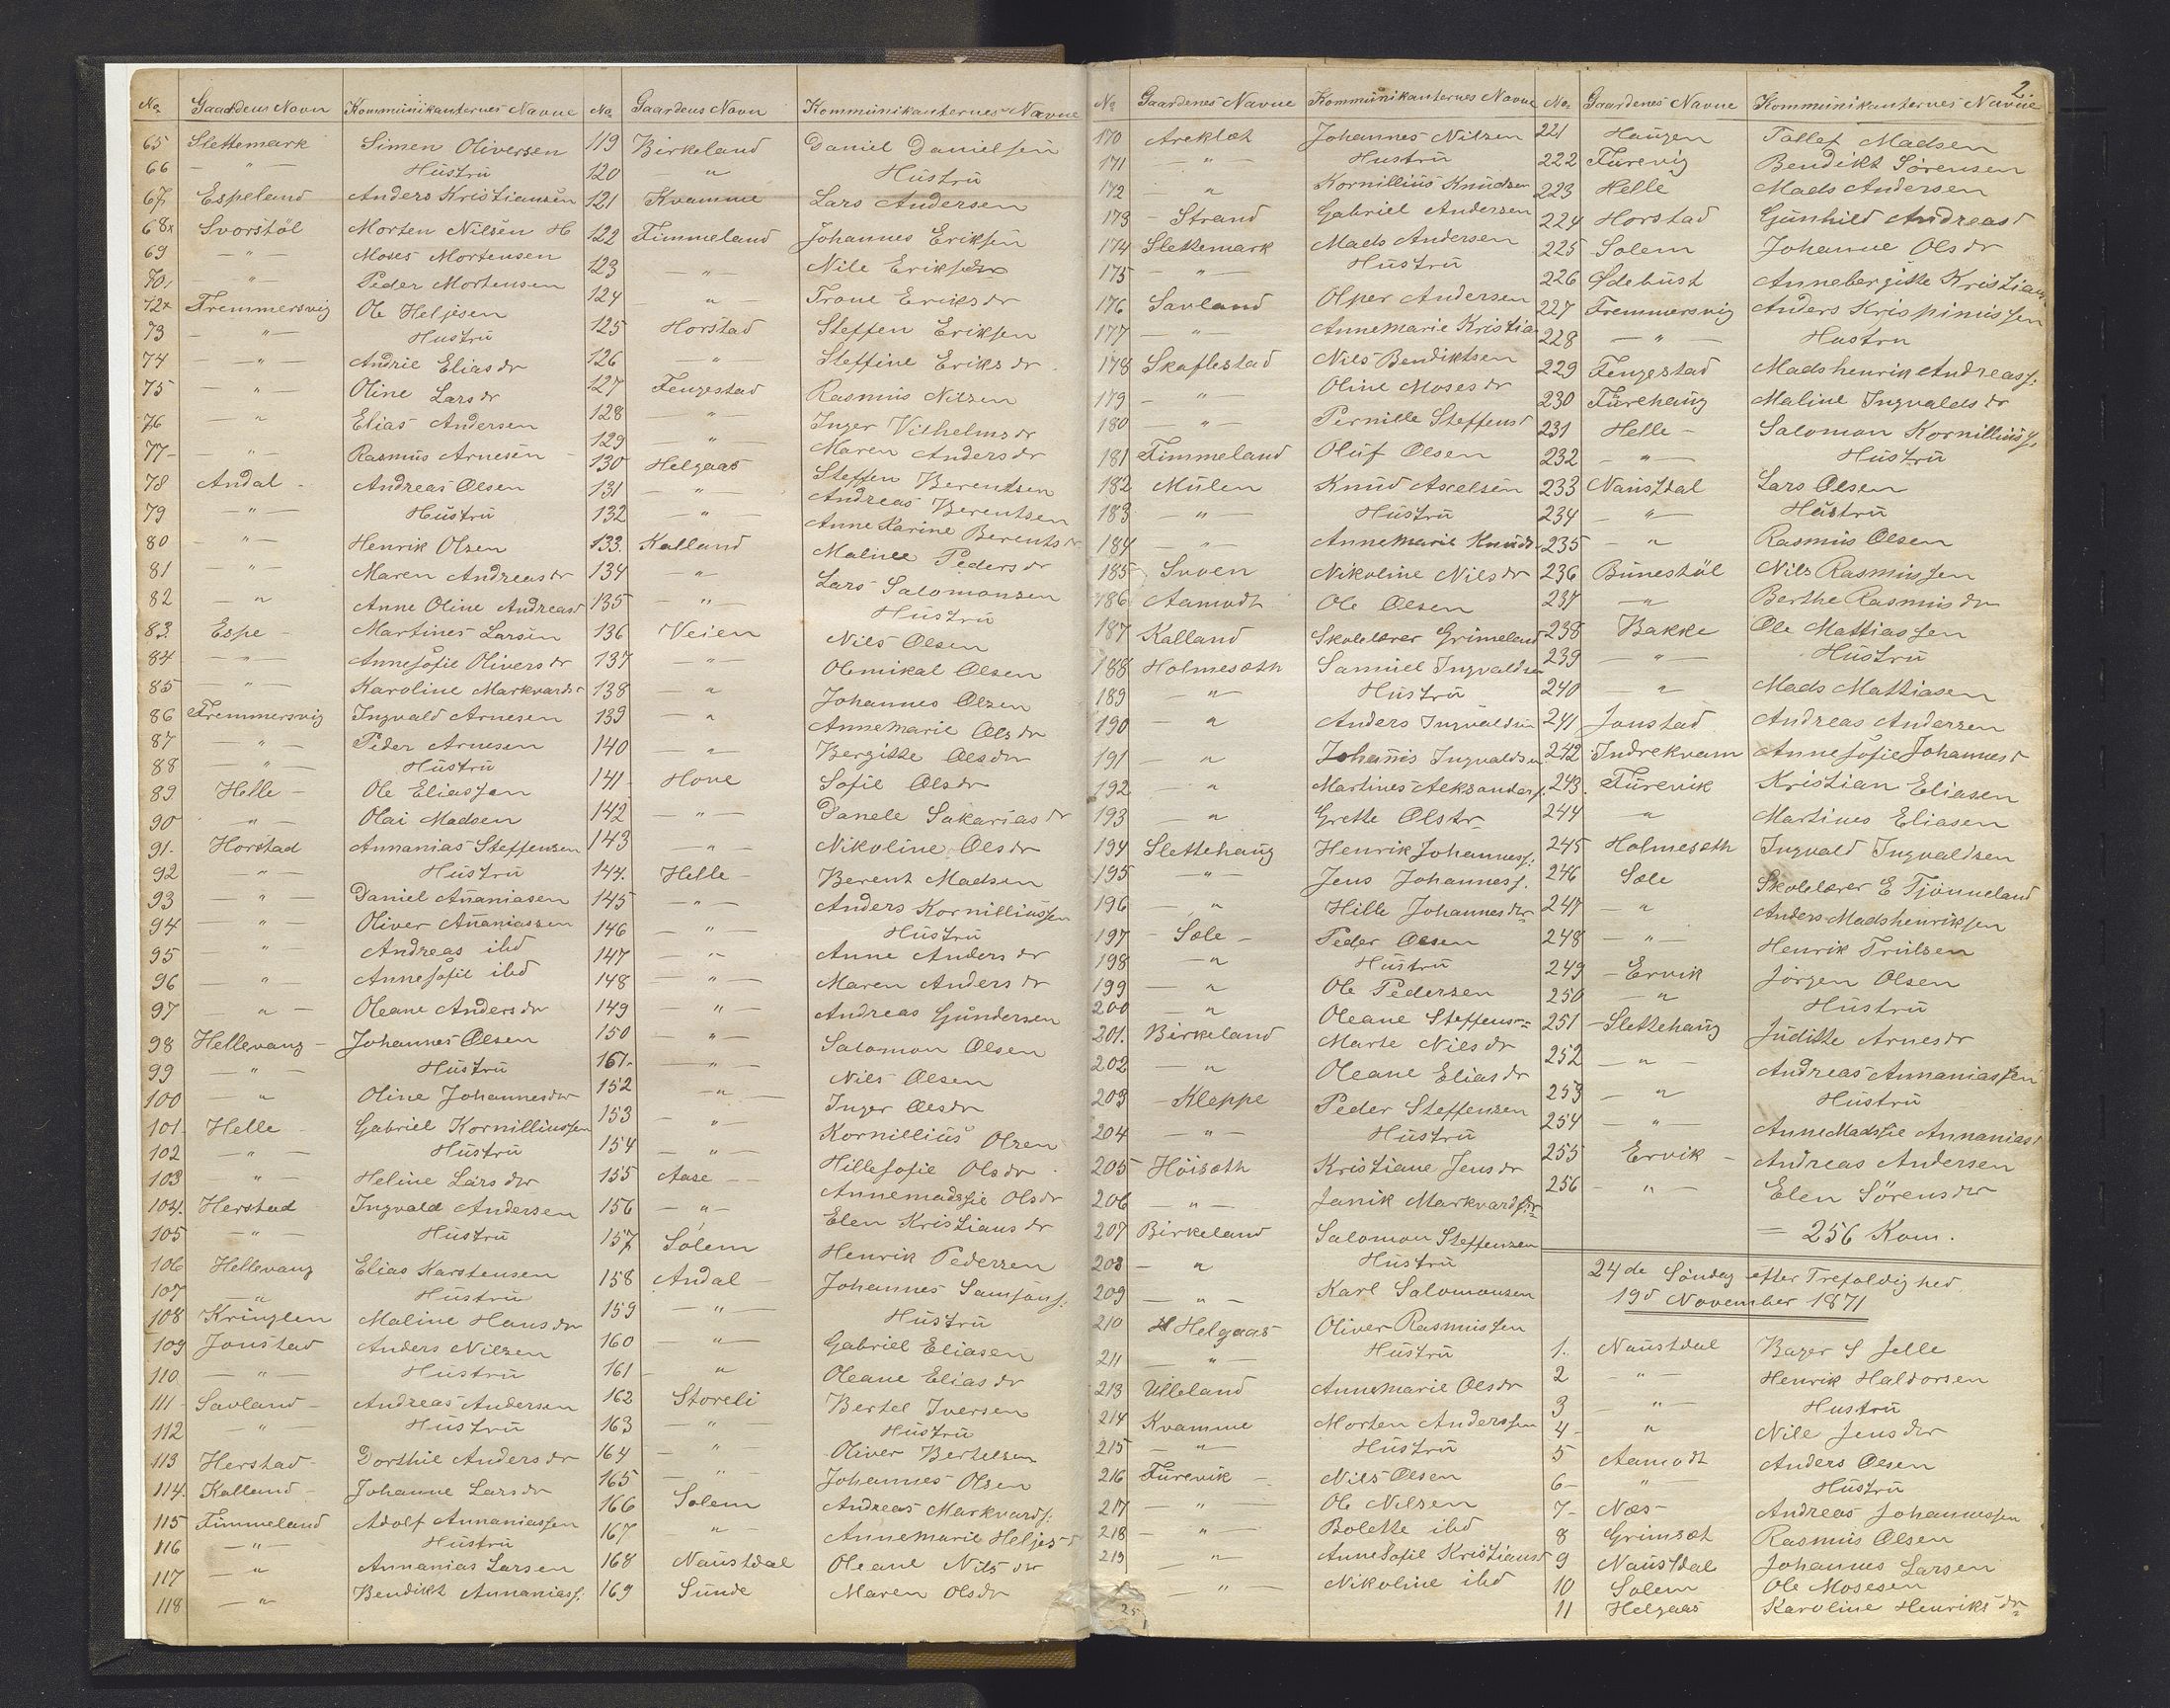 No. Gaardens Navn Kommunikanternes Navne
65 Slettemark Simen Oliversen
66 - " - Hustru
67 Espeland Anders Kristiansen
68x Svorstöl Morten Nilsen H
69 - " - Moses Mortensen
70, - " - Peder Mortensen
72x Fremmersvig Ole Heljesen
73 - " - Hustru
74 - " - Andrie Eliasdr
75 - " - Oline Larsdr
76 - " - Elias Andersen
77 - - " - Rasmus Arnesen
78 Andal - Andreas Olsen
79 - " - Hustru
80 - " - Henrik Olsen
81 - " - Maren Andreasdr
82 - " Anne Oline Andreasd
83 Espe - Martines Larsen
84 - " - Annesofie Oliversdr
85 - " - Karoline Markvardsr
86 Fremmersvig Ingvald Arnesen
87 - " - Peder Arnesen
88 - " - Hustru
89 Helle - Ole Eliassen
90 - " - Olai Madsen
91. Horstad Annanias Steffensen
92 - " - Hustru
93 - " - Daniel Ananiasen
94 - " - Oliver Ananiassen
95 - " - Andreas ibd
96 - " - Annesofie ibd
97 " - Oleane Andersdr
98 Hellevang - Johannes Olsen
99 - " - Hustru
100 - " Oline Johannesdr
101. Helle - Gabriel Kornilliussen
102 - " - Hustru
103 - " - Heline Larsdr
104. Herstad Ingvald Andersen
105 - " - Hustru
106 Hellevang Elias Karstensen
107 - " - Hustru
108 Kringlen Maline Hansdr
109 Jonstad Anders Nilsen
110. - " - Hustru
111 - Savland - Andreas Andersen
112 - " Hustru
113 Herstad - Dorthie Andersdr
114. Kalland - Johanne Larsdr
115 Timmeland Adolf Annaniassen
116 - " - Hustru
117 - " Annanias Larsen
118 - " Bendikt Annaniass:
No. Gaardens Navn Kommunikanternes Navne
119 Birkeland Daniel Danielsen
120 - " Hustru
121 Kvamme Lars Andersen
122 Timmeland Johannes Eriksen
123 - " - Nile Eriksdr
124 - " - Trone Eriksdr
125 Horstad Steffen Eriksen
126 - " Steffine Eriksdr
127 Fengestad Rasmus Nilsen
128 - " - Inger Vilhelmsdr
129 - " - Maren Andersdr
130 Helgaas Steffen Berentsen
131 - " - Andreas Berentsen
132 - " - Anne Karine Berentsdr
133. Kalland Malinee Pedersdr
134 - " Lars Salomonsen
135 - " - Hustru
136 Veien Nils Olsen
137 - " - Olemikal Olsen
138 - " Johannes Olsen
139 - " Annemarie Olsdr
140 - " - Bergitte Olsdr
141 - Hove Sofie Olsdr
142 - " - Danele Sakariasdr
143 - " - Nikoline Olsdr
144. Helle - Berent Madsen
145 - " - Anders Kornilliussen
146 - " - Hustru
147 - " - Anne Andersdr
148 - " - Maren Andersdr
149 - " - Andreas Gundersen
150 - " - Salomon Olsen
161. - " - Nils Olsen
152 - " - Inger Olsdr
153 - " - Kornillius Olsen
154 - " - Hillesofie Olsdr
155 Aase - - Annemadssie Olsdr
156 - " - Elen Kristiansdr
157 Solem Henrik Pedersen
158 Andal - Johannes Samsons:
159 - " - Hustru
160 " - Gabriel Eliasen
161 - " Oleane Eliasdr
162 Storeli Bertel Iversen
163 - " - Hustru
164 - " Oliver Bertelsen
165 - " - Johannes Olsen
166 Solem Andreas Markvards:
167 " - Annemarie Heljesd
168 Naustdal Oleane Nilsdr
169 Sunde Maren Olsdr
No Gaardenes Navne Kommunikanternes Navne
170 Areklet Johannes Nilsen
171 - " - Hustru
172 " Kornillius Knudsen
173 - Strand Gabriel Andersen
174 Slettemark Mads Andersen
175 - " - Hustru
176 Savland Olper Andersen
177 - " - Annemarie Kristia
178 Skaflestad Nils Bendiktsen
179 - " - Oline Mosesdr
180 - " - Pernille Steffensd
181 Timmeland Oluf Olsen
182 Mulen Knud Axelsen
183 " - Hustru
184 - " - Annemarie Knuds
185 Svoen Nikoline Nilsdr
186 Aamodt Ole Olsen
187 Kalland Skolelærer Grimeland
188 Holmesæth Samuel Ingvaldsen
189 - " - Hustru
190 - " Anders Ingvaldsen
191 - " Johannis Ingvaldsen
192 - " Martines Aleksanders:
193 - " Grette Olsdr
194 Slettehaug Henrik Johanness:
195 - " - Jens Johanness.
196 - " Hille Johannesdr
197 - Sole - Peder Olsen
198 - " Hustru
199 - " Ole Pedersen
200 - " Oleane Steffens
201. Birkeland Marte Nilsdr
202 - " Oleane Eliasdr
203 - Kleppe Peder Steffensen
204 - " - Hustru
205 Höisæth Kristiane Jensdr
206 - " - Janik Markvardsdr
207 Birkeland Salomon Steffensen
208 - " Hustru
209 - " - Karl Salomonsen
210 Helgaas Oliver Rasmussen
211 - " - Hustru
213 Ulleland Annemarie Olsdr
214 Kvamme Morten Anderssen
215 - " - Hustru
216 Furevik - Nils Olsen
217 - " - Ole Nilsen
218 - " - Bolette ibd
219 - " Annesofie Kristiansd
" Nikoline ibd
2.
No. Gaardenes Navne Kommunikanternes Navne
221 Haugen Tollef Madsen
222 Furevig Bendikt Sörensen
223 Helle Mads Andersen
224 Horstad Gunhild Andreasd
225 Solem Johanne Olsdr
226 Sdebust Annebergitte Kristians
227 Fremmersvig Anders Krispinussen
228 - " - Hustru
229 Fengestad Madshenrik Andreass:
230 Furehaug Maline Ingvaldsdr
231 Helle - Salomon Kornilliuss:
232 - " - Hustru
233 Naustdal Lars Olsen
234 - " - Hustru
235 - " Rasmus Olsen
236 Bunestöl Nils Rasmussen
237 - " Berthe Rasmusdr
238 Bakke Ole Mattiassen
239 - " - Hustru
240 - " Mads Mattiasen
241 Jonstad Andreas Andersen
242 Indrekvam Annesofie Johannesd
243. Furevik Kristian Eliasen
244 " Martines Eliasen
245 Holmesæth Ingvald Ingvaldsen
246 Sole Skolelærer E Tjönneland
247 - " Anders Madshenriksen
248 - " - Henrik Trulsen
249 - Ervik Jörgen Olsen
250 - " Hustru
251 - Slettehaug Juditte Arnesdr
252 - " - Andreas Annaniassen
253 - " Hustru
254 - " - Annemadssie Annaniasd
255 Ervik - Andreas Andersen
256 - " - Elen Sörensdr
= 256 Kom.
24de Söndag efter Trefoldighed
19d November 1871
1. Naustdal Bager S Jelle
2 - " - Henrik Haldorsen
3 - " - Hustru
4 - " Nille Jensdr
5 Aamodt Anders Olsen
6 - " - Hustru
7 - Næs - Andreas Johannessen
8 Grimsæt Rasmus Olsen
9 Naustdal Johannes Larsen
10 Solem Ole Mosesen
11 Helgaas Karoline Henriksdr